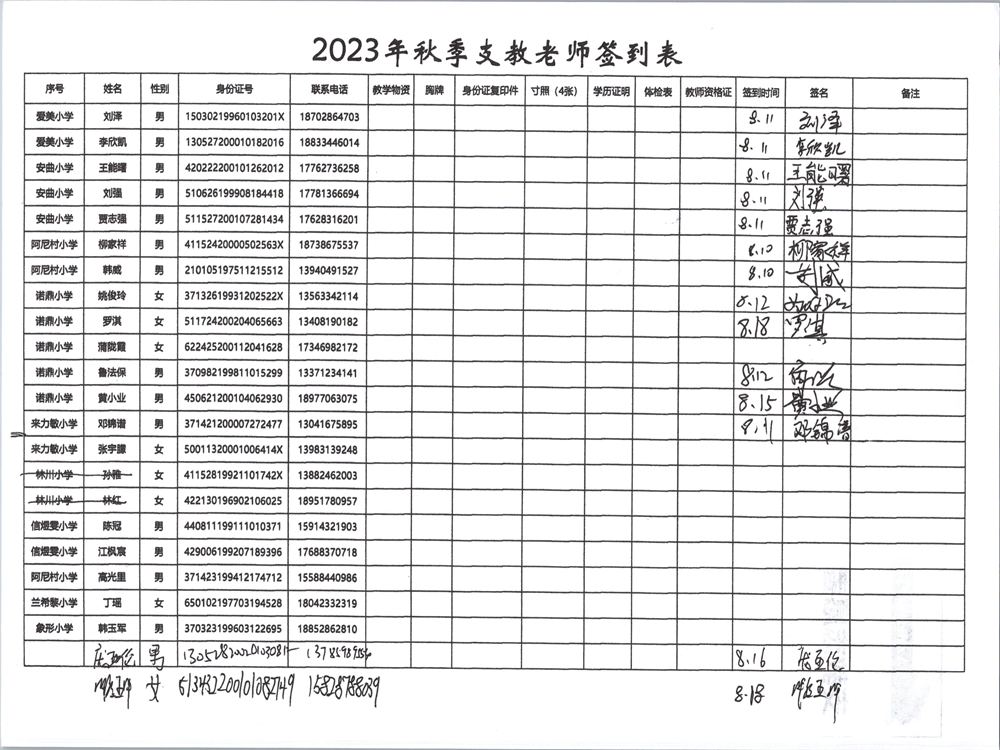 2023年秋季支教老师签到表
序号 姓名 性别 身份证号 联系电话 教学物资 胸牌 身份证复印件 寸照（4张） 学历证明 体检表 教师资格证 签到时间 签名 备注
爱美小学 刘泽 男 15030219960103201X 18702864703 8.11 刘泽
爱美小学 李欣凯 男 130527200010182016 18833446014 8.11 李欣凯
安曲小学 王能曙 男 420222200101262012 17762736258 8.11 王能曙
安曲小学 刘强 男 510626199908184418 17781366694 8.11 刘强
安曲小学 贾志强 男 511527200107281434 17628316201 8.11 贾志强
阿尼村小学 柳家祥 男 41152420000502563X 18738675537 8.10 柳家祥
阿尼村小学 韩威 男 210105197511215512 13940491527 8.10
诺鼎小学 姚俊玲 女 37132619931202522X 13563342114 8.12
诺鼎小学 罗淇 女 511724200204065663 13408190182 8.18 罗淇
诺鼎小学 蒲陇霞 女 622425200112041628 17346982172
诺鼎小学 鲁法保 男 370982199811015299 13371234141 8.12
诺鼎小学 黄小业 男 450621200104062930 18977063075 8.15 黄小业
来力敏小学 邓锦谱 男 371421200007272477 13041675895 8.11 邓锦谱
来力敏小学 张宇朦 女 50011320001006414X 13983139248
林川小学 孙雅 女 41152819921101742X 13882462003
林川小学 林红 女 422130196902106025 18951780957
信煜雯小学 陈冠 男 440811199111010371 15914321903
信煜雯小学 江枫宸 男 429006199207189396 17688370718
阿尼村小学 高光里 男 371423199412174712 15588440986
兰希黎小学 丁瑶 女 650102197703194528 18042332319
象形小学 韩玉军 男 370323199603122695 18852862810
男 8.16
女 513432200101082749 15828788039 8.18